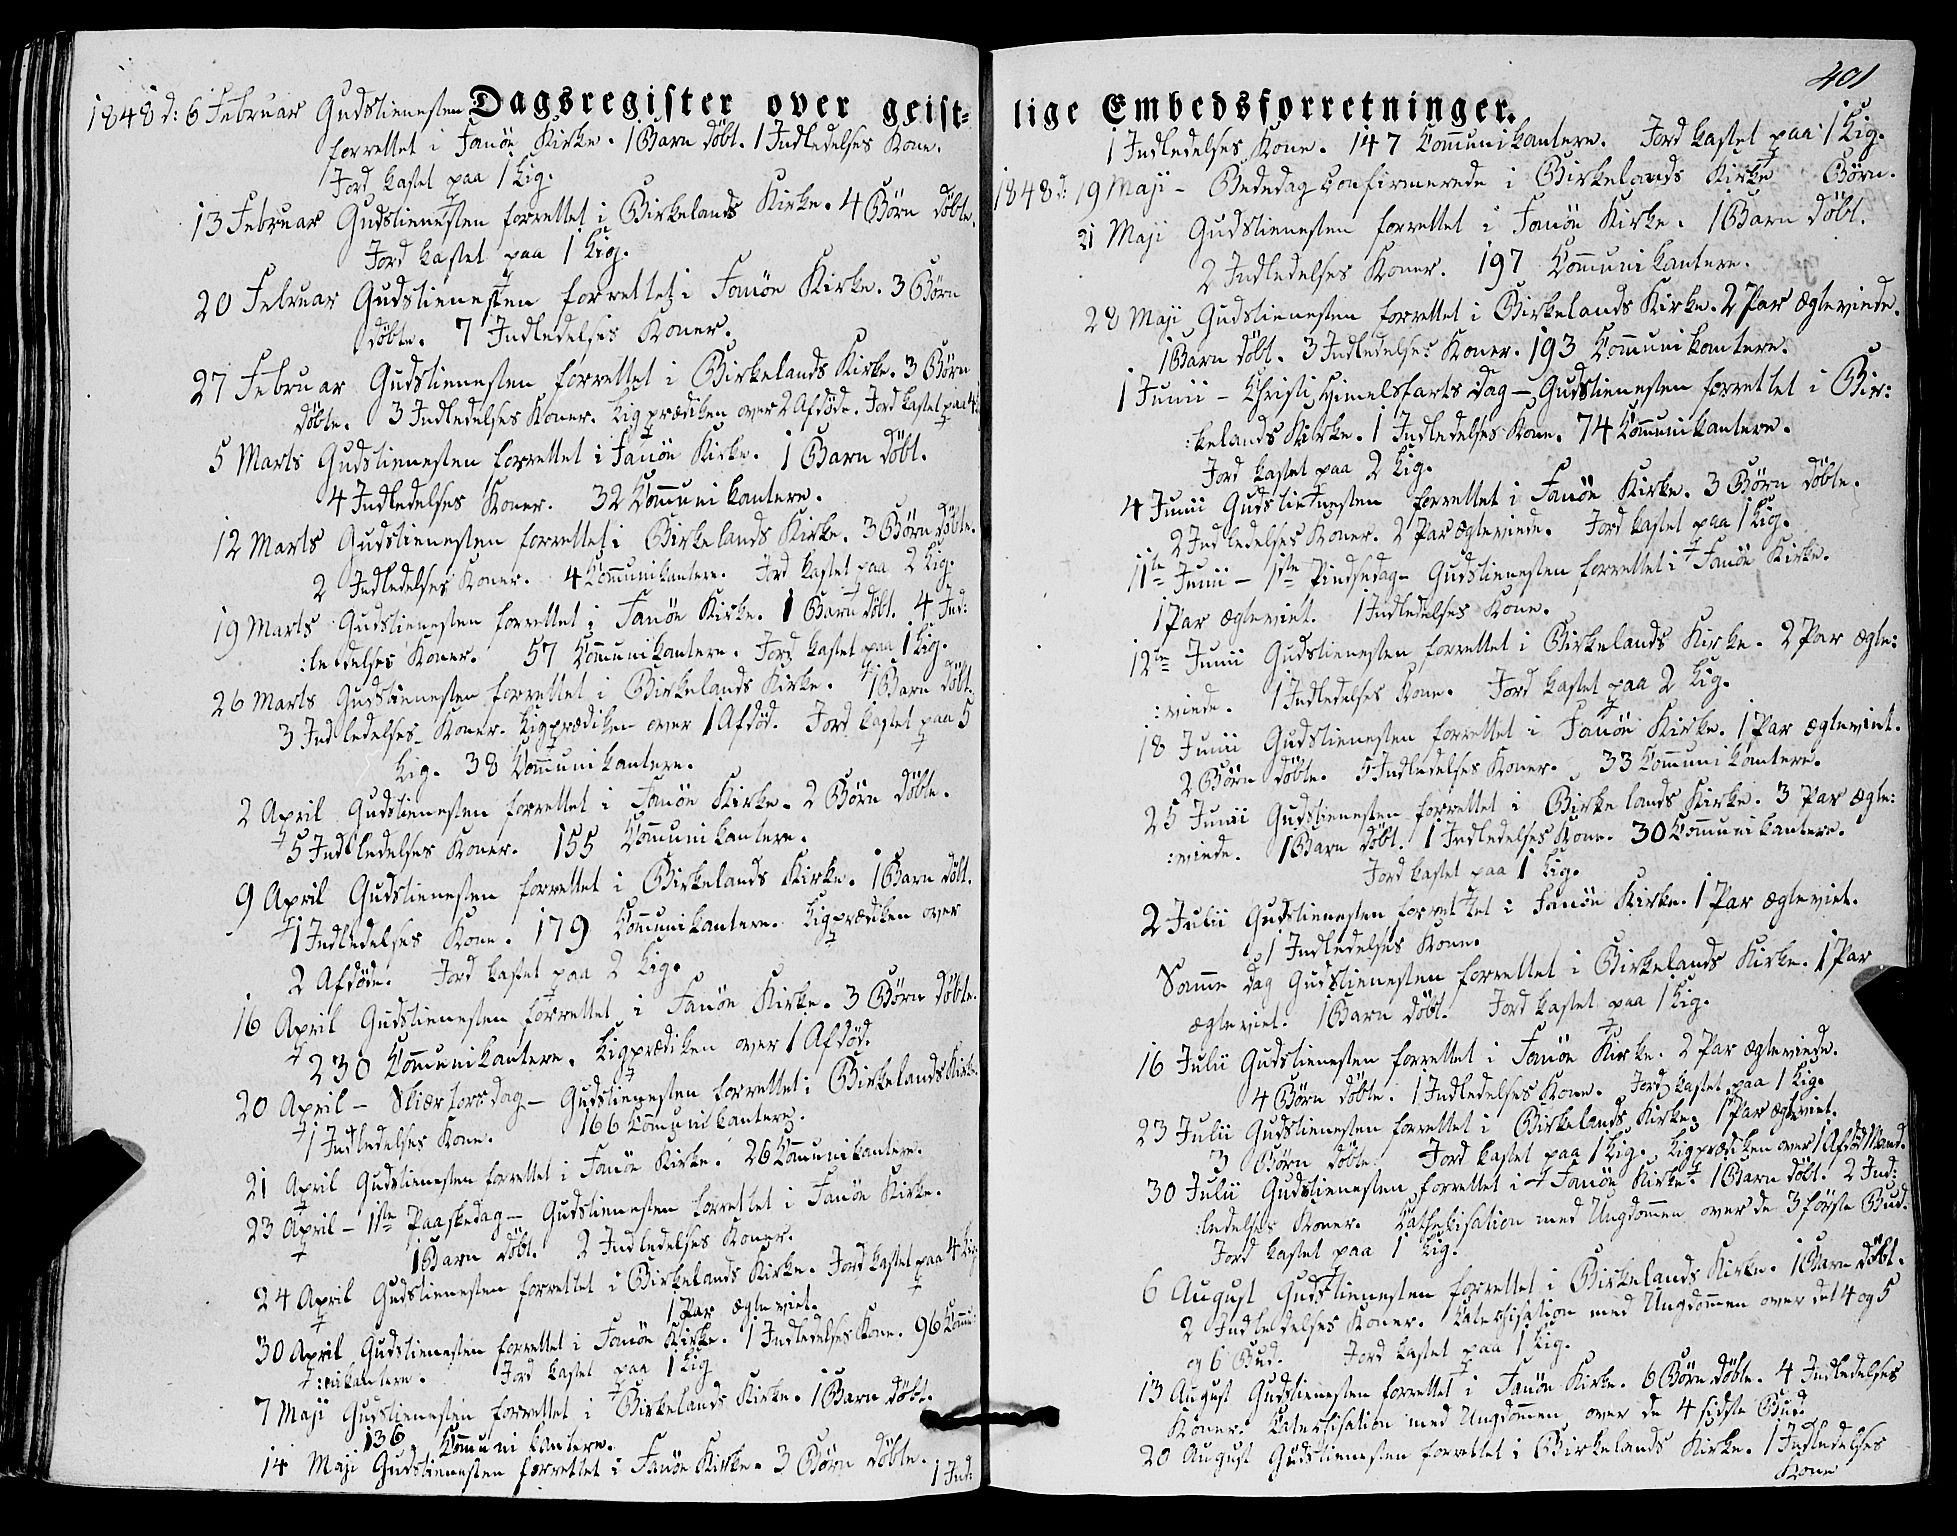 Dagsregister over geist=
1848 d: 6 Februar Gudstienesten
forrettet i Fanöe Kirke. 1 Barn döbt. 1 Indledelses Kone.
Jord kastet paa 1 Lig.
13 Februar Gudstienesten forrettet i Birkelands Kirke. 4 Börn döbte.
Jord kastet paa 1 Lig.
20 Februar Gudstienesten forrettet i Fanöe Kirke. 3 Börn
döbte. 7 Indledelses Koner.
27 Februar Gudstienesten forrettet i Birkelands Kirke. 3 Börn
döbte. 3 Indledelses Koner. Ligprædiken over 2 Afdöde. Jord kastet paa 4
5 Marts Gudstienesten forrettet i Fanöe Kirke. 1 Barn döbt.
4 Indledelses Koner. 32 Com̄unikantere.
12 Marts Gudstienesten forrettet i Birkelands Kirke. 3 Börn döbte.
2 Indledelses Koner. 4 Com̄unikantere. Jord kastet paa 2 Lig.
19 Marts Gudstienesten forrettet i Fanöe Kirke. 1 Barn döbt. 4 Ind:
:ledelses Koner. 57 Com̄unikantere. Jord kastet paa 1 Lig.
26 Marts Gudstienesten forrettet i Birkelands Kirke. 1 Barn döbt.
3 Indledelses Koner. Ligprædiken over 1 Afdöd. Jord kastet paa 5
Lig. 38 Com̄unikantere.
2 April Gudstienesten forrettet i Fanöe Kirke. 2 Börn döbte.
5 Indledelses Koner. 155 Com̄unikantere.
9 April Gudstienesten forrettet i Birkelands Kirke. 1 Barn döbt.
1 Indledelses Kone. 179 Com̄unikantere. Ligprædiken over
2 Afdöde. Jord kastet paa 2 Lig.
16 April Gudstienesten forrettet i Fanöe Kirke. 3 Börn döbte.
230 Com̄unikantere. Ligprædiken over 1 Afdöd.
20 April - Skiærtorsdag - Gudstienesten forrettet i Birkelands Kirke.
1 Indledelses Kone. 166 Com̄unikantere.
21 April Gudstienesten forrettet i Fanöe Kirke. 26 Com̄unikantere.
23 April - 1ste Paaskedag - Gudstienesten forrettet i Fanöe Kirke.
1 Barn döbt. 2 Indledelses Koner.
24 April Gudstienesten forrettet i Birkelands Kirke. Jord kastet paa 4 Lig.
1 Par ægteviet.
30 April Gudstienesten forrettet i Fanöe Kirke. 1 Indledelses Kone. 96 Com̄u:
:nikantere. Jord kastet paa 1 Lig
7 Maji Gudstienesten forrettet i Birkelands Kirke. 1 Barn döbt.
136 Com̄unikantere.
14 Maji Gudstienesten forrettet i Fanöe Kirke. 3 Börn döbte.
1 Ind:
401
lige Embedsforretninger.
1 Indledelses Kone. 147 Com̄unikantere. Jord kastet paa 1 Lig.
1848 d: 19 Maji - Bededag Confirmerede i Birkelands Kirke Börn.
21 Maji Gudstienesten forrettet i Fanöe Kirke. 1 Barn döbt.
2 Indledelses Koner. 197 Com̄unikantere.
28 Maji Gudstienesten forrettet i Birkelands Kirke. 2 Par ægteviede.
1 Barn döbt. 3 Indledelses Koner. 193 Com̄unikantere.
1 Junii - Christi Himelsfarts dag - Gudstienesten forrettet i Bir:
:kelands Kirke. 1 Indledelses Kone. 74 Com̄unikantere.
Jord kastet paa 2 Lig.
4 Junii Gudstienesten forrettet i Fanöe Kirke. 3 Börn döbte.
2 Indledelses Koner. 2 Par ægteviede. Jord kastet paa 1 Lig.
11te Junii - 1ste Pindsedag - Gudstienesten forrettet i Fanöe Kirke.
1 Par ægteviet. 1 Indledelses Kone.
12te Junii Gudstienesten forrettet i Birkelands Kirke. 2 Par ægte:
:viede. 1 Indledelses Kone. Jord kastet paa 2 Lig.
18 Junii Gudstienesten forrettet i Fanöe Kirke. 1 Par ægteviet.
2 Börn döbte. 5 Indledelses Koner. 33 Com̄unikantere.
25 Junii Gudstienesten forrettet i Birkelands Kirke. 3 Par ægte:
:viede. 1 Barn döbt. 1 Indledelses Kone. 30 Com̄unikantere.
Jord kastet paa 1 Lig.
2 Julii Gudstienesten forrettet i Fanöe Kirke. 1 Par ægteviet.
1 Indledelses Kone.
Samme dag Gudstienesten forrettet i Birkelands Kirke. 1 Par
ægteviet. 1 Barn döbt. Jord kastet paa 1 Lig.
16 Julii Gudstienesten forrettet i Fanöe Kirke. 2 Par ægteviede.
4 Börn döbte. 1 Indledelses Kone. Jord kastet paa 1 Lig.
23 Julii Gudstienesten forrettet i Birkelands Kirke. 1 Par ægteviet.
3 Börn döbte. Jord kastet paa 1 Lig. Ligprædiken over 1 Afdöd Mand.
30 Julii Gudstienesten forrettet i Fanöe Kirke. 1 Barn döbt. 2 Ind:
:ledelses Koner. Cathekisation med Ungdom̄en over de 3 förste Bud.
Jord kastet paa 1 Lig.
6 August Gudstienesten forrettet i Birkelands Kirke. 1 Barn döbt.
2 Indledelses Koner. Catechisation med Ungdom̄en over det 4 og 5
og 6 Bud. Jord kastet paa 1 Lig.
13 August Gudstienesten forrettet i Fanöe Kirke. 6 Börn döbte. 4 Indledelses
Koner. Catechisation med Ungdom̄en over de 4 sidste Bud.
20 August Gudstienesten forrettet i Birkelands Kirke. 1 Indledelses
Kone